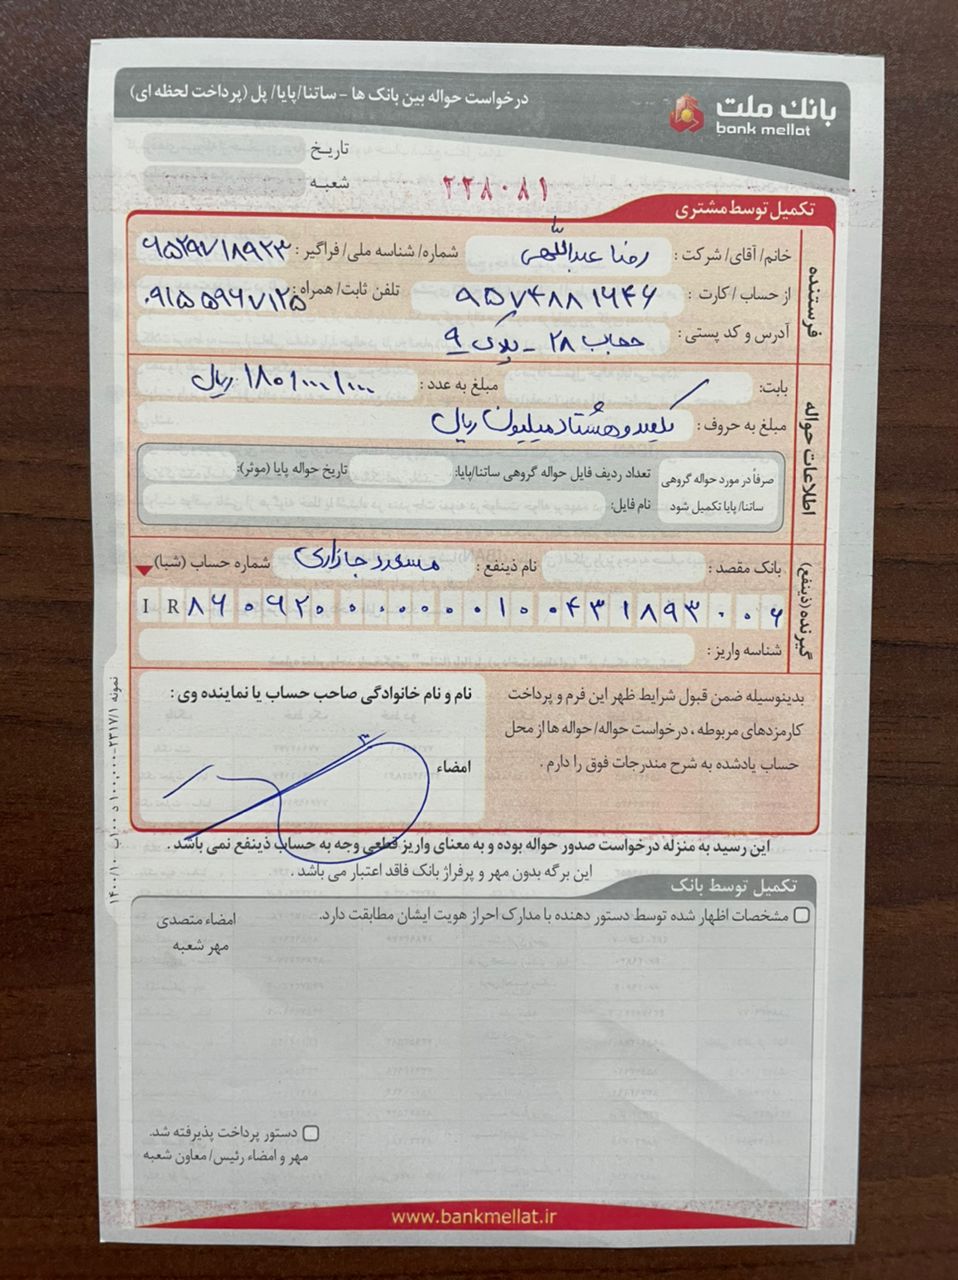 درخواست حواله بین بانک ها - ساتنا/پایا/ پل (پرداخت لحظه ای)
بانک ملت
bank mellat
تاریخ
شعبه
۲۲۸۰۸۱
تکمیل توسط مشتری
فرستنده
خانم/ آقای/ شرکت : رضا عبداللهی شماره/ شناسه ملی/ فراگیر : ۶۵۲۹۷۱۸۹۲۳
از حساب / کارت : ۹۵۷۴۸۸۱۶۴۶ تلفن ثابت/ همراه : ۰۹۱۵۵۹۶۷۱۲۵
آدرس و کد پستی : حجاب ۲۸ - پلاک ۹
اطلاعات حواله
بابت: مبلغ به عدد : ۱۸۰/۰۰۰/۰۰۰ ریال
مبلغ به حروف : یکصد و هشتاد میلیون ریال
صرفاً در مورد حواله گروهی ساتنا/ پایا تکمیل شود
تعداد ردیف فایل حواله گروهی ساتنا/پایا: تاریخ حواله پایا (موثر):
نام فایل:
گیرنده (ذینفع)
بانک مقصد : نام ذینفع : مسعود جازاری شماره حساب (شبا)
IR ۸۶۰۶۲۰۰۰۰۰۰۰۰۱۰۰۴۳۱۸۹۳۰۰۶
شناسه واریز :
بدینوسیله ضمن قبول شرایط ظهر این فرم و پرداخت
کارمزدهای مربوطه ، درخواست حواله/ حواله ها از محل
حساب یادشده به شرح مندرجات فوق را دارم .
نام و نام خانوادگی صاحب حساب یا نماینده وی :
امضاء
این رسید به منزله درخواست صدور حواله بوده و به معنای واریز قطعی وجه به حساب ذینفع نمی باشد .
این برگه بدون مهر و پرفراژ بانک فاقد اعتبار می باشد .
تکمیل توسط بانک
مشخصات اظهار شده توسط دستور دهنده با مدارک احراز هویت ایشان مطابقت دارد.
امضاء متصدی
مهر شعبه
دستور پرداخت پذیرفته شد.
مهر و امضاء رئیس/ معاون شعبه
www.bankmellat.ir
نمونه ۲۳۱۷/۱-۱۰۰,۰۰۰ د ۱۰۰ب ۱۴۰۰/۱۰